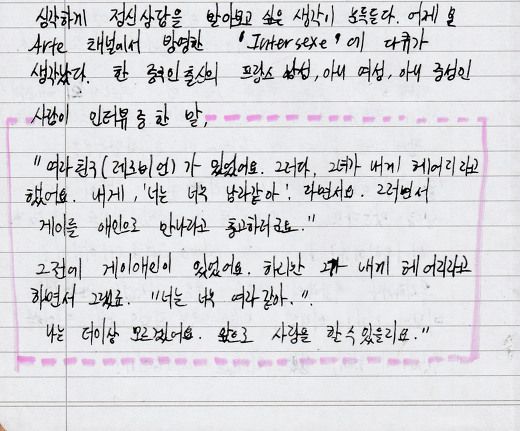 심각하게 정신상담을 받아보고 싶은 생각이 솟구친다. 어제 본
Arte 채널에서 방영한 'Intersexe'에 다큐가
생각났다. 한 중국인 출신의 프랑스 남성, 아니 여성, 아니 중성인
사람이 인터뷰 중 한 말,
"여자친구(레즈비언)가 있었어요. 그러다, 그녀가 내게 헤어지라고
했어요. 내게, '너는 너무 남자같아'. 라면서요. 그러면서
게이를 애인으로 만나라고 충고하더군요."
그전에 게이애인이 있었어요. 하지만 그가 내게 헤어지라고
하면서 그랬죠. "너는 너무 여자같아.".
나는 더이상 모르겠어요. 앞으로 사랑을 할 수 있을지요."